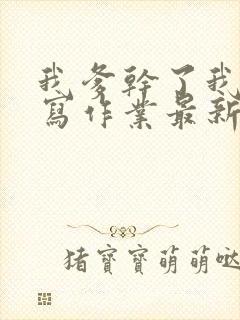 我爹幹了我
寫作業最新
猪寶寶萌萌噠